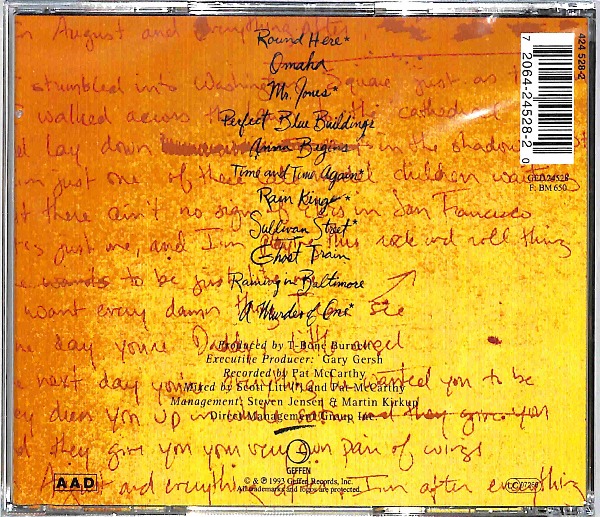 In August and Everything After
Round Here*
Omaha
Mr. Jones*
Perfect Blue Buildings
Anna Begins
Time and Time Again*
Rain King*
Sullivan Street*
Ghost Train
Raining in Baltimore
A Murder of One*
stumbled into Washington Square just as
walked across the cathedral
lay down in the shadow
just one of these children waiting
there ain't no sign of in San Francisco
just me, and I'm playing this rock and roll thing
to be just
want every damn thing I see
day you're Daddy's little angel
next day you're everything wanted you to be
dress you up in and they give you
they give you your very own pair of wings
August and everything I'm after everything
Produced by T-Bone Burnett
Executive Producer: Gary Gersh
Recorded by Pat McCarthy
Mixed by Scott Litt and Pat McCarthy
Management: Steven Jensen & Martin Kirkup
Direct Management Group Inc.
GEFFEN
© & ℗ 1993 Geffen Records, Inc.
All trademarks and logos are protected.
AAD
424 528-2
7 20642-24528-2 0
GED 24528
F: BM 650